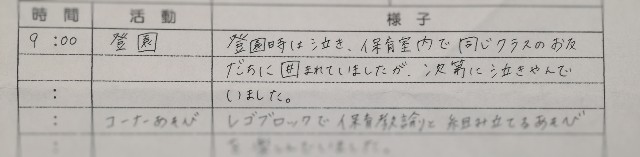 時間 活動 様子
9:00 登園 登園時は泣き、保育室内で同じクラスのお友
だちに囲まれていましたが、次第に泣きやんで
: いました。
: コーナーあそび レゴブロックで保育教諭と組み立てるあそび
を楽しんでいました。